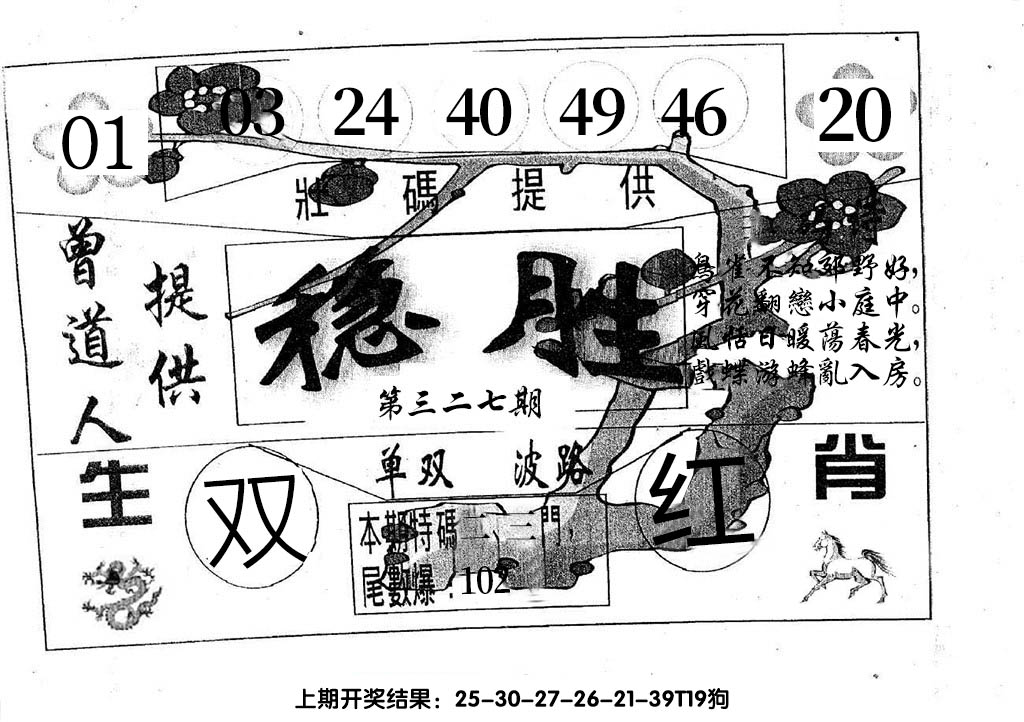 01 03 24 40 49 46 20
壯碼提供
特
曾道人
提供
稳胜
第三二七期
鳥雀不知郊野好,
穿花翻戀小庭中。
風恬日暖蕩春光,
戲蝶游蜂亂入房。
生
肖
单双 波路
双
红
本期特碼二、三門,
尾數爆:102
上期开奖结果:25-30-27-26-21-39T19狗